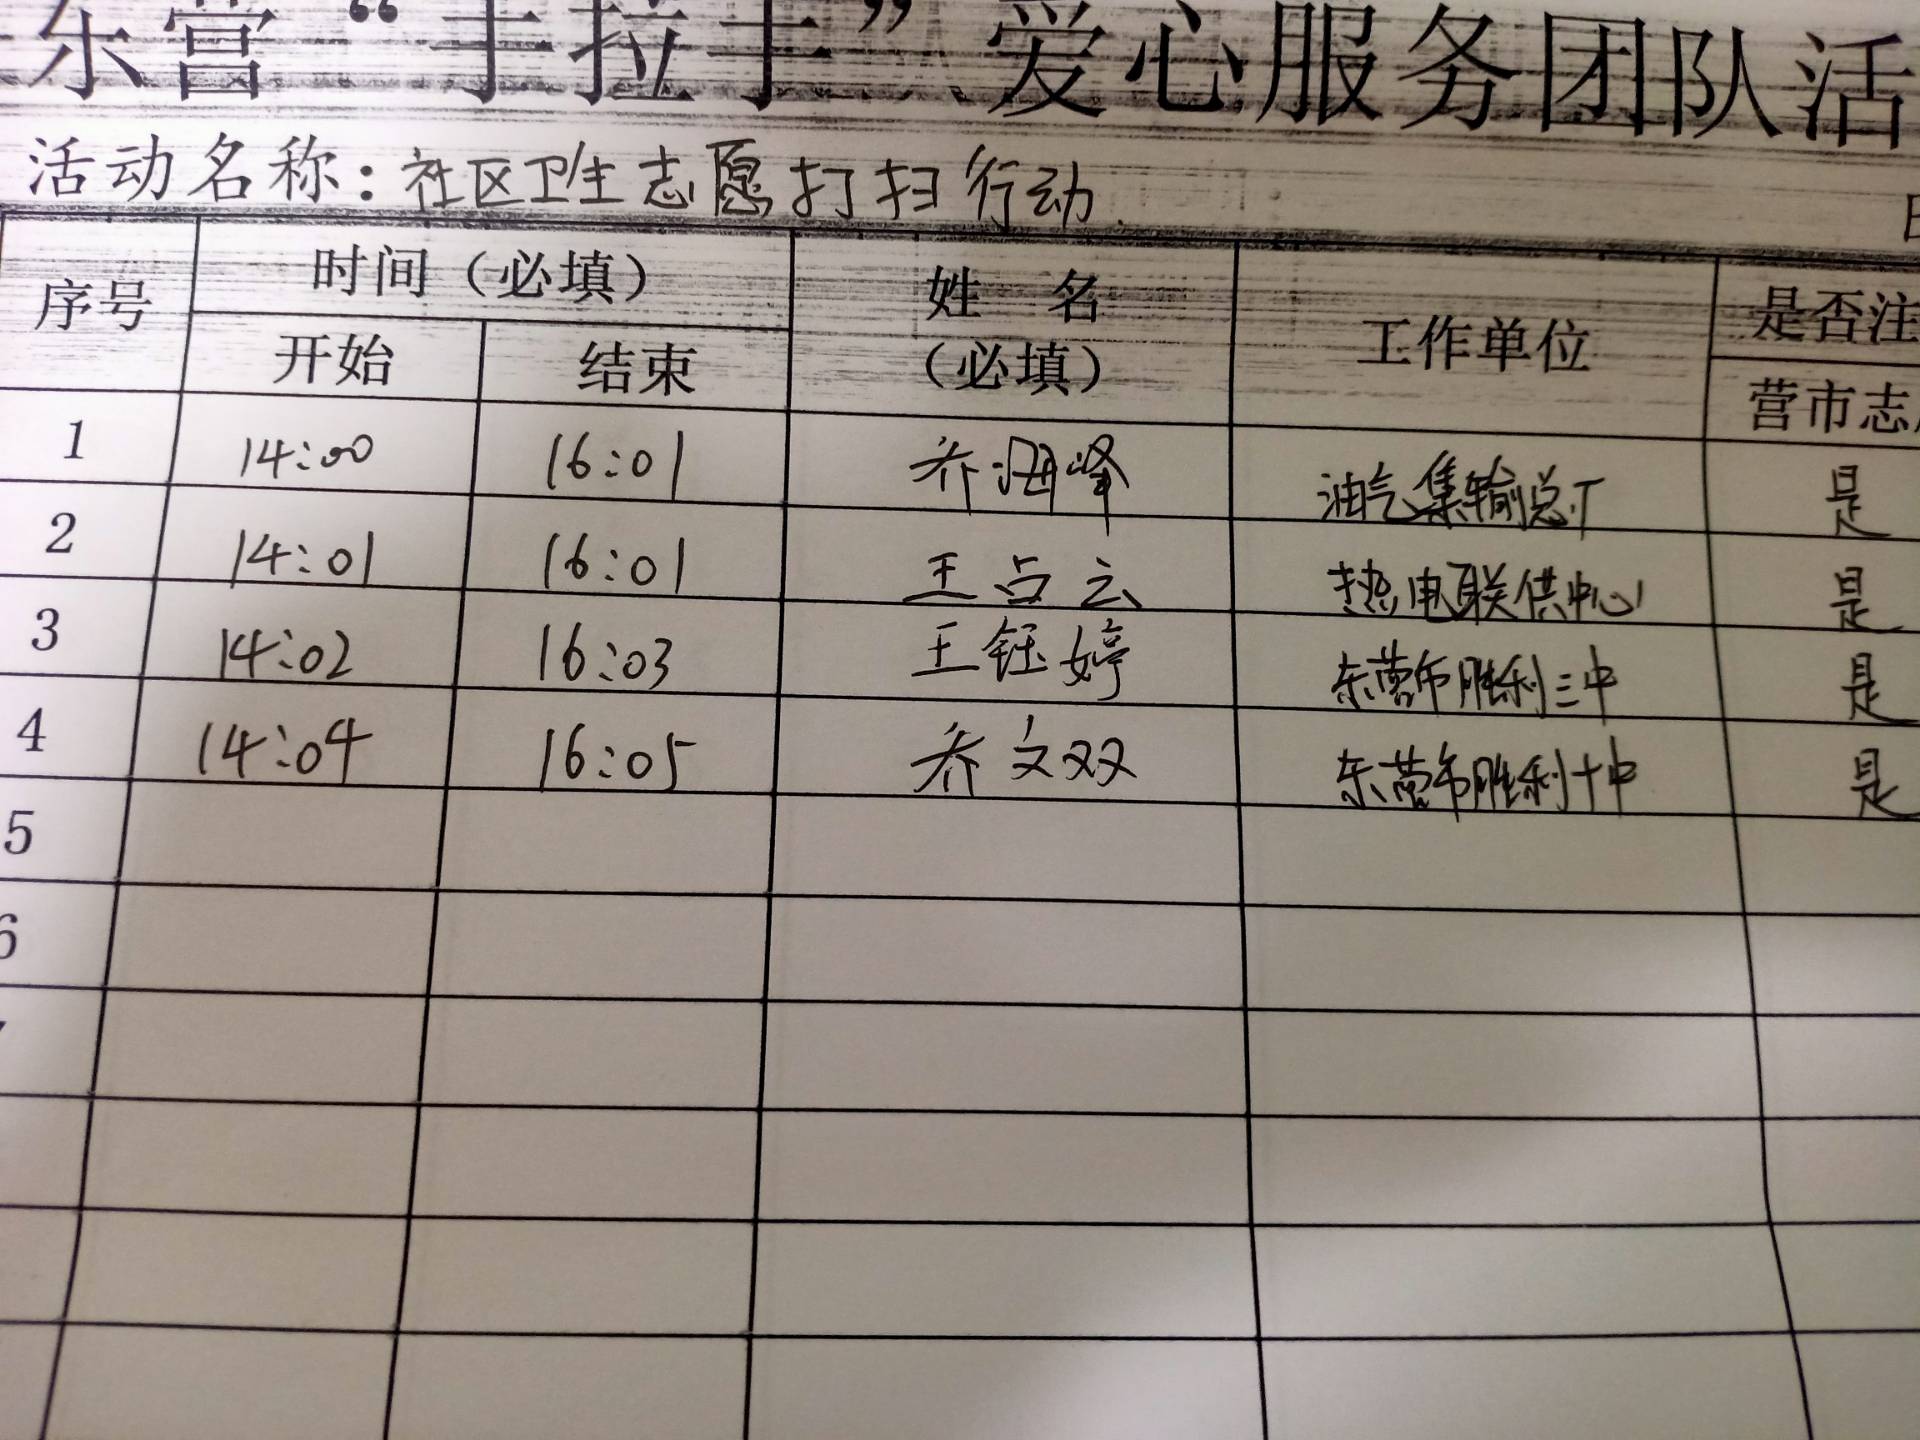 东营“手拉手”爱心服务团队活
活动名称：社区卫生志愿打扫行动
序号 时间（必填） 姓 名（必填） 工作单位 是否注
开始 结束 营市志
1 14:00 16:01 乔海峰 油气集输总厂 是
2 14:01 16:01 王占云 热电联供中心 是
3 14:02 16:03 王钰婷 东营市胜利三中 是
4 14:04 16:05 乔文双 东营市胜利十中 是
5
6